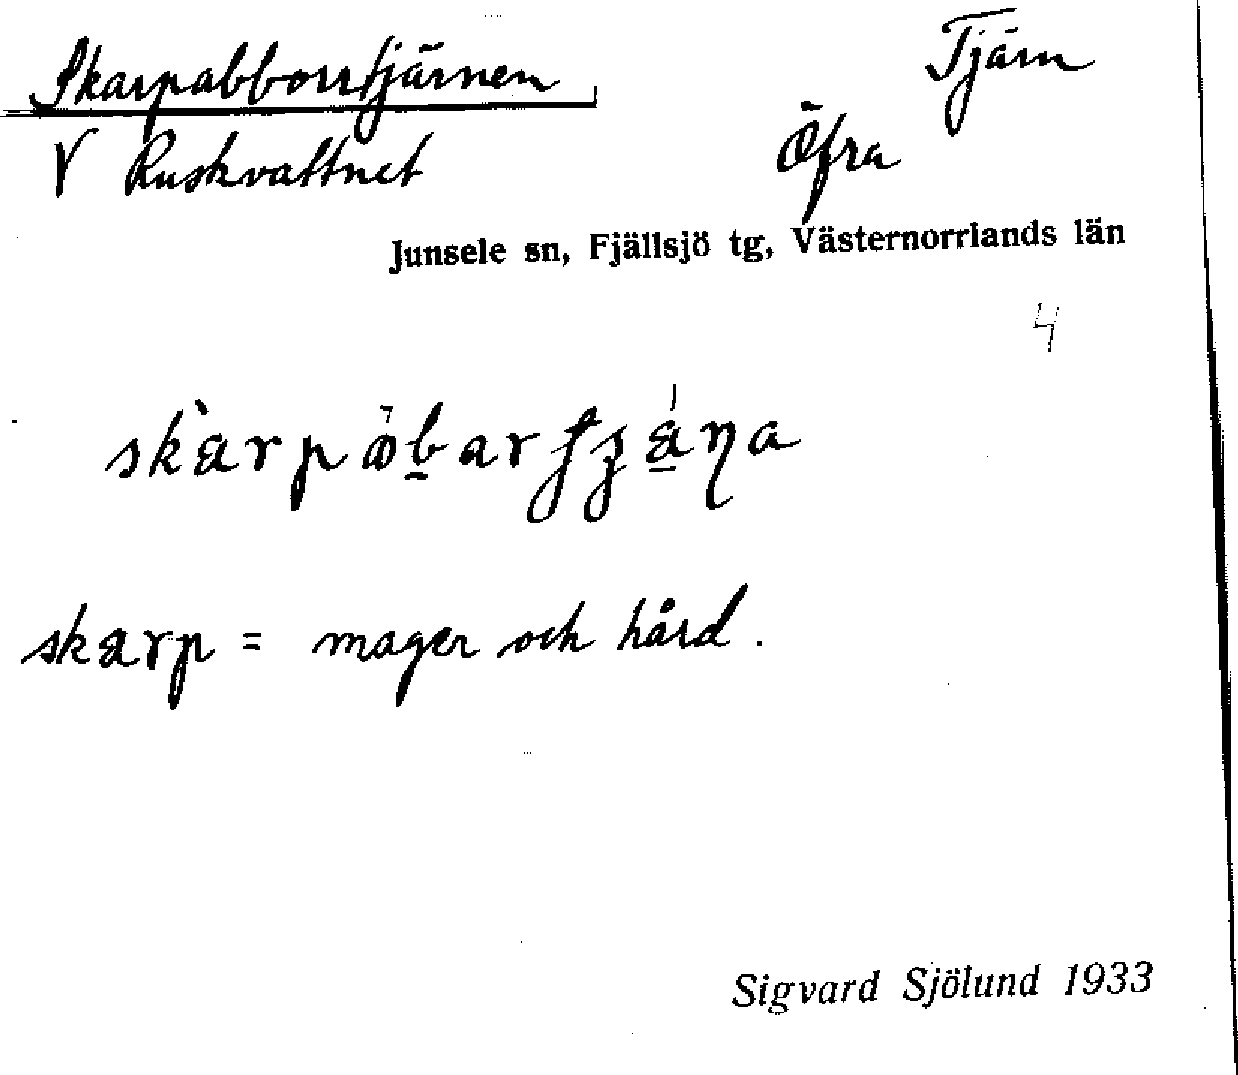 Skarpabborrtjärnen
Tjärn
V Ruskvattnet
Öfra
Junsele sn, Fjällsjö tg, Västernorrlands län
4
skarp = mager och hård.
Sigvard Sjölund 1933